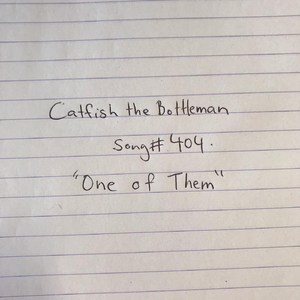 Catfish the Bottleman
Song# 404.
"One of Them"